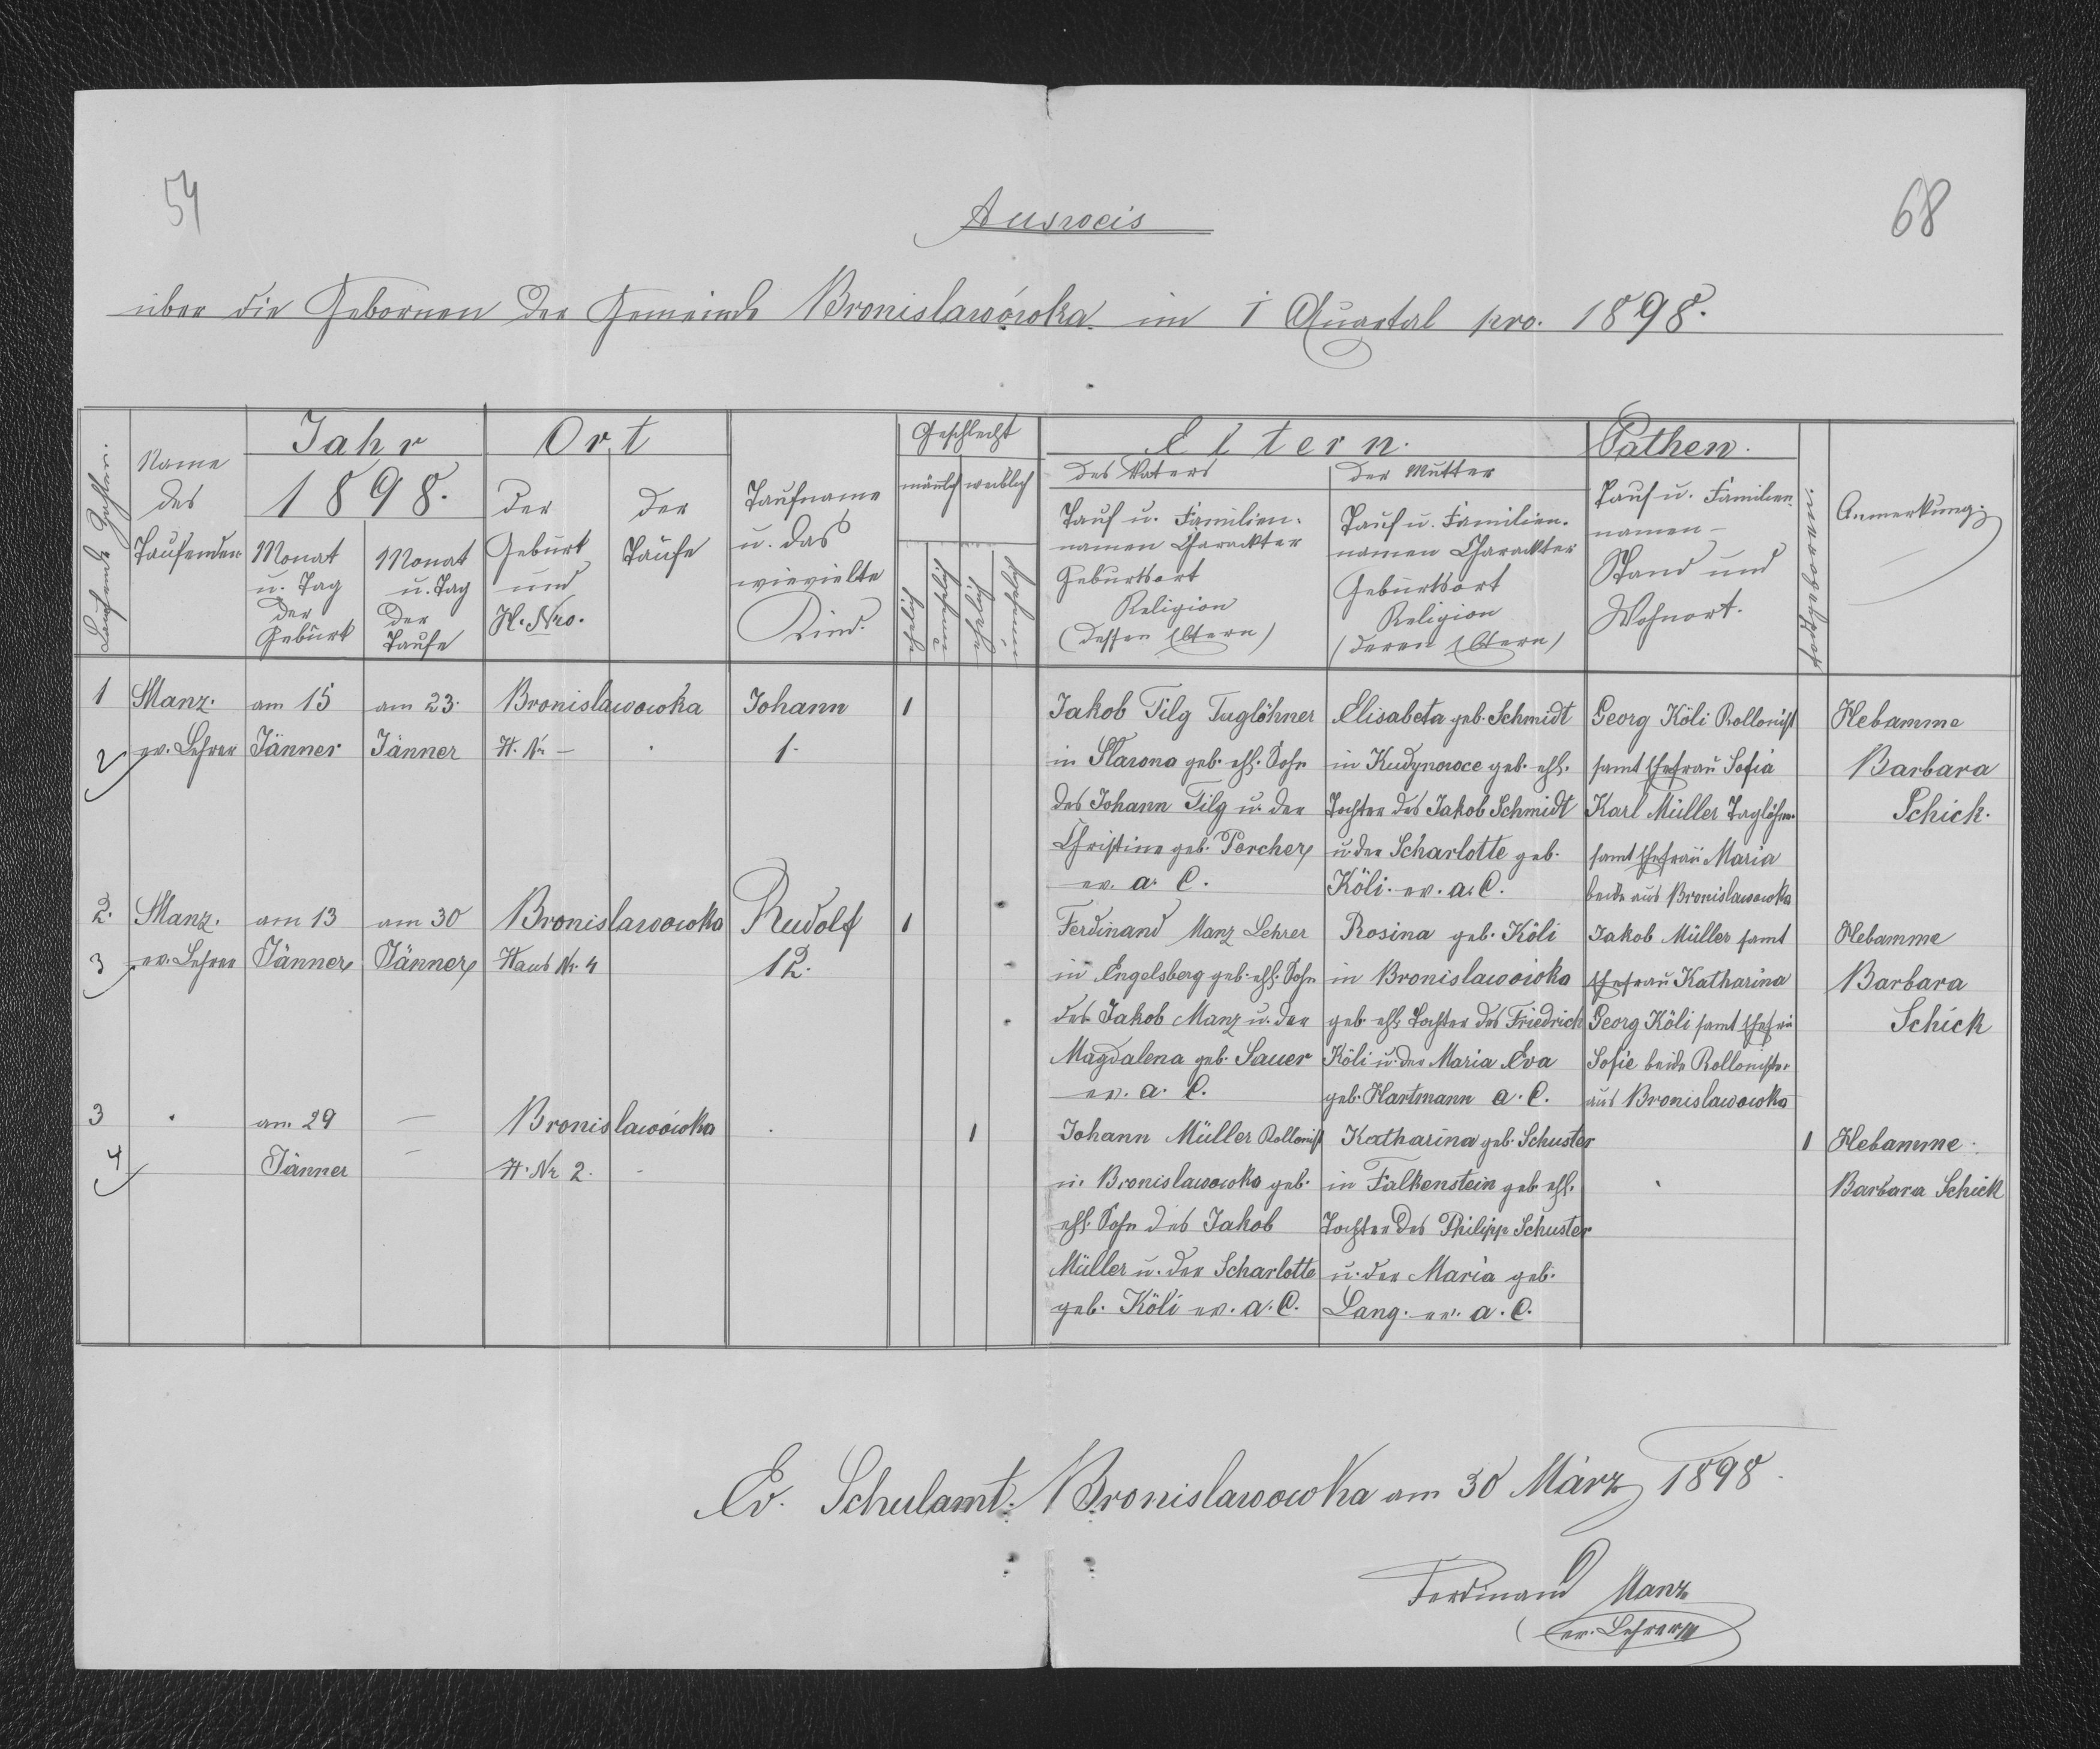 54
68
Ausweis
über die Gebornen der Gemeinde Bronislawówka im I Quartal pro. 1898.
Laufende Zahlen.
Name
des
Taufenden
Jahr
1898.
Monat
u. Tag
der
Geburt
Monat
u. Tag
der
Taufe
Ort
der
Geburt
und
H. Nro.
der
Taufe
Taufname
u. das
wievielte
Kind.
Geschlecht
männlich weiblich
Eltern.
des Vaters
Tauf u. Familien-
namen Charackter
Geburtsort
Religion
(dessen Eltern)
der Mutter
Tauf u. Familien-
namen Charackter
Geburtsort
Religion
(deren Eltern)
Pathen.
Tauf u. Familien-
namen
Stand und
Wohnort.
todtgeboren.
Anmerkung.
1
2
Manz.
ev. Lehrer
am 15
Jänner
am 23.
Jänner
Bronislawowka
H. Nr –
Johann
1.
1
Jakob Tilg Tuglöhner
in Slawna geb. ehl. Sohn
des Johann Tilg u. der
Christine geb. Percher
ev. a. C.
Elisabeta geb. Schmidt
in Kudynowce geb. ehl.
Tochter des Jakob Schmidt
u. der Scharlotte geb.
Köli. ev. a. C.
Georg Köli Kollonist
samt Ehefrau Sofia
Karl Müller Taglöhner
samt Ehefrau Maria
beide aus Bronislawowka
Hebamme
Barbara
Schick.
2.
3
Manz.
ev. Lehrer
am 13
Jänner
am 30
Jänner
Bronislawowka
Haus Nr. 4
Rudolf
12.
1
Ferdinand Manz Lehrer
in Engelsberg geb. ehl. Sohn
des Jakob Manz u. der
Magdalena geb. Sauer
ev. a. C.
Rosina geb. Köli
in Bronislawowka
geb. ehl. Tochter des Friedrich
Köli u. der Maria Eva
geb. Hartmann a. C.
Jakob Müller samt
Ehefrau Katharina
Georg Köli samt Ehefrau
Sofie beide Kollonisten
aus Bronislawowka
Hebamme
Barbara
Schick
3
4
am 29
Jänner
–
–
Bronislawówka
H. Nr 2.
1
Johann Müller Kollonist
in Bronislawowka geb.
ehl. Sohn des Jakob
Müller u. der Scharlotte
geb. Köli ev. a. C.
Katharina geb. Schuster
in Falkenstein geb. ehl.
Tochter des Philipp Schuster
u. der Maria geb.
Lang. ev. a. C.
1
Hebamme
Barbara Schick
Ev. Schulamt. Bronislawowka am 30 März 1898
Ferdinand Manz
ev. Lehrer